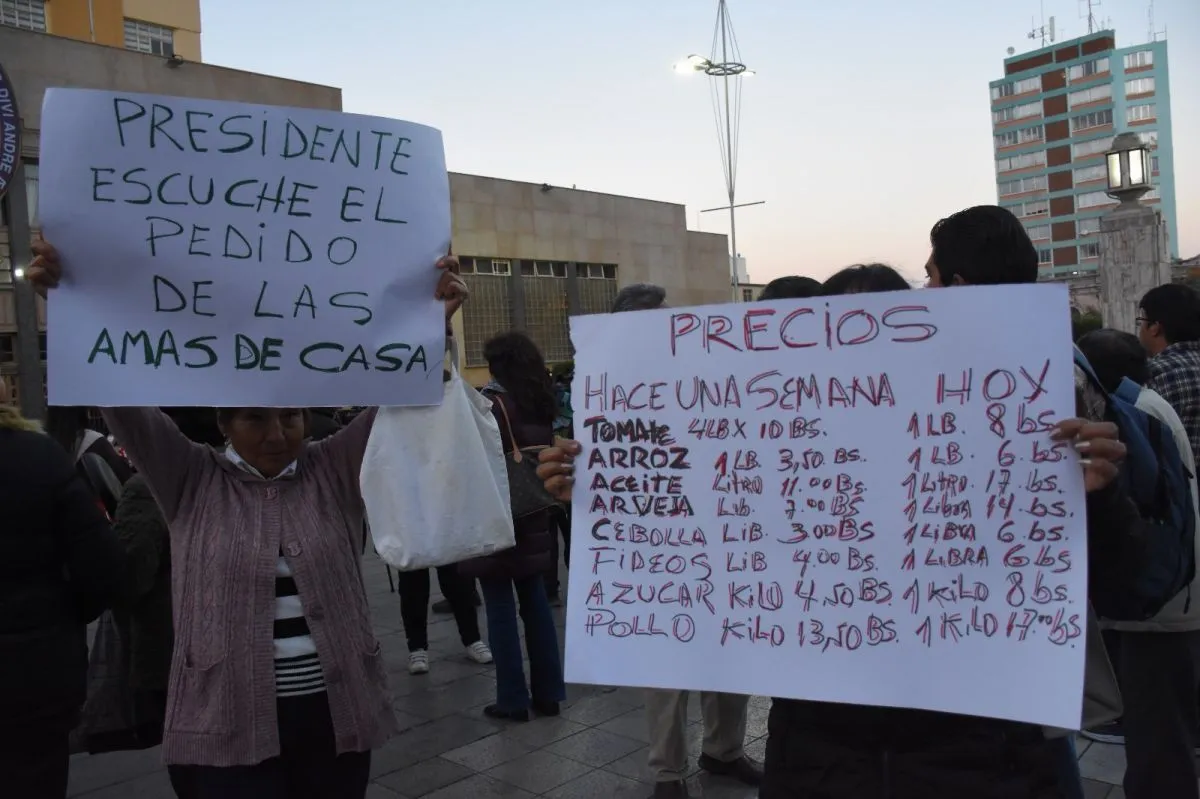 DIVI ANDRE
PRESIDENTE
ESCUCHE EL
PEDIDO
DE LAS
AMAS DE CASA
PRECIOS
HACE UNA SEMANA HOY
TOMATE 4LBX 10 BS. 1 LB. 8 bs.
ARROZ 1 LB. 3,50 BS. 1 LB. 6 bs.
ACEITE LITRO 11.00 Bs. 1 LITRO. 17. bs.
ARVEJA Lib. 7.00 Bs. 1 Libra 14. bs.
CEBOLLA LIB. 3.00 BS 1 LIBRA 6 bs.
FIDEOS LIB 4.00 Bs. 1 LIBRA 6 bs
AZUCAR KILO 4,50 BS. 1 KILO 8 bs.
POLLO KILO 13,50 BS. 1 KILO 17.00 bs.